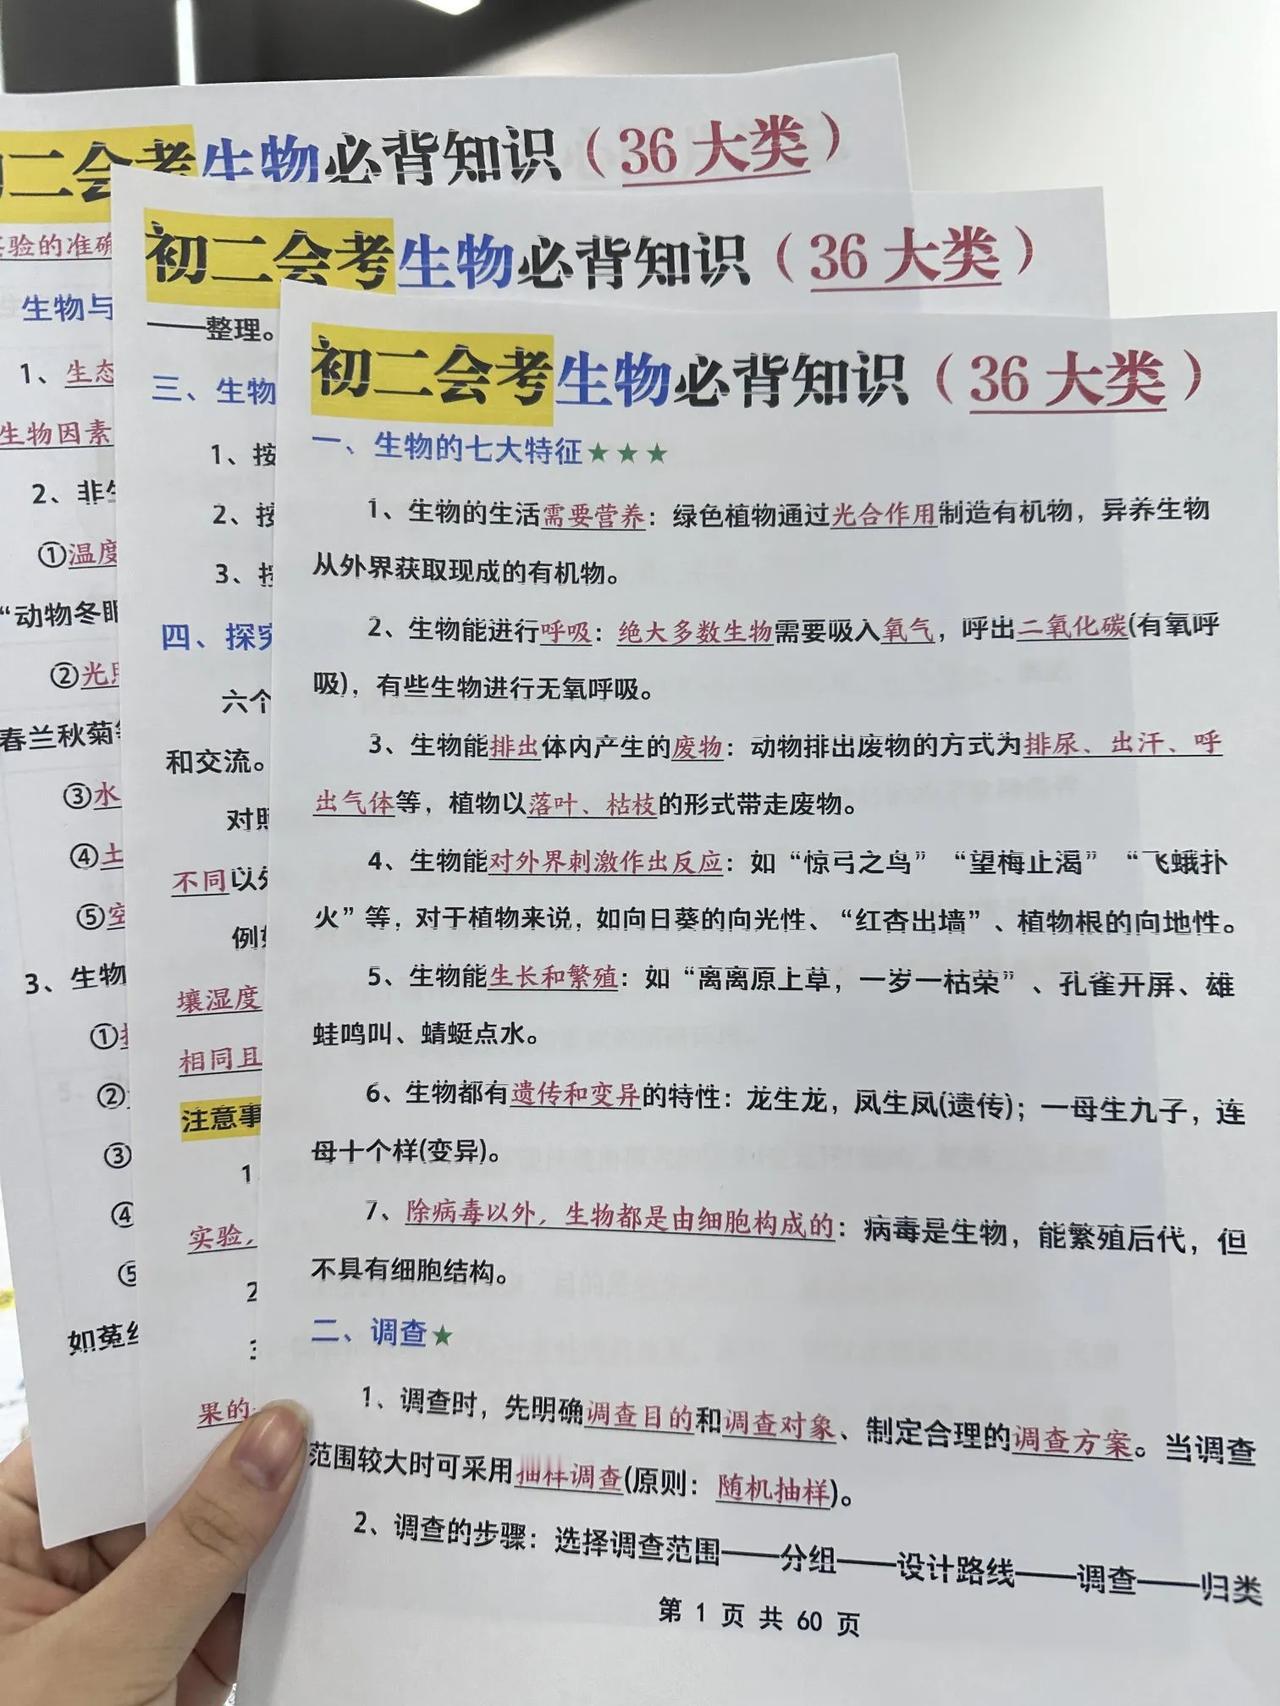 初二会考生物必背知识（36大类）
验的准确
生物与
1、生态
生物因素
2、非生
①温度
“动物冬眠
②光照
春兰秋菊等
③水
④土
⑤空
3、生物
①
②
③
④
⑤
如菟丝
初二会考生物必背知识（36大类）
——整理。
三、生物
1、按
2、按
3、按
四、探究
六个
和交流。
对照
不同以外
例如
壤湿度
相同且
注意事
1
实验，
2
3
果的
初二会考生物必背知识（36大类）
一、生物的七大特征★★★
1、生物的生活需要营养：绿色植物通过光合作用制造有机物，异养生物
从外界获取现成的有机物。
2、生物能进行呼吸：绝大多数生物需要吸入氧气，呼出二氧化碳(有氧呼
吸)，有些生物进行无氧呼吸。
3、生物能排出体内产生的废物：动物排出废物的方式为排尿、出汗、呼
出气体等，植物以落叶、枯枝的形式带走废物。
4、生物能对外界刺激作出反应：如“惊弓之鸟”“望梅止渴”“飞蛾扑
火”等，对于植物来说，如向日葵的向光性、“红杏出墙”、植物根的向地性。
5、生物能生长和繁殖：如“离离原上草，一岁一枯荣”、孔雀开屏、雄
蛙鸣叫、蜻蜓点水。
6、生物都有遗传和变异的特性：龙生龙，凤生凤(遗传)；一母生九子，连
母十个样(变异)。
7、除病毒以外，生物都是由细胞构成的：病毒是生物，能繁殖后代，但
不具有细胞结构。
二、调查★
1、调查时，先明确调查目的和调查对象、制定合理的调查方案。当调查
范围较大时可采用抽样调查(原则：随机抽样)。
2、调查的步骤：选择调查范围——分组——设计路线——调查——归类
第 1 页 共 60 页